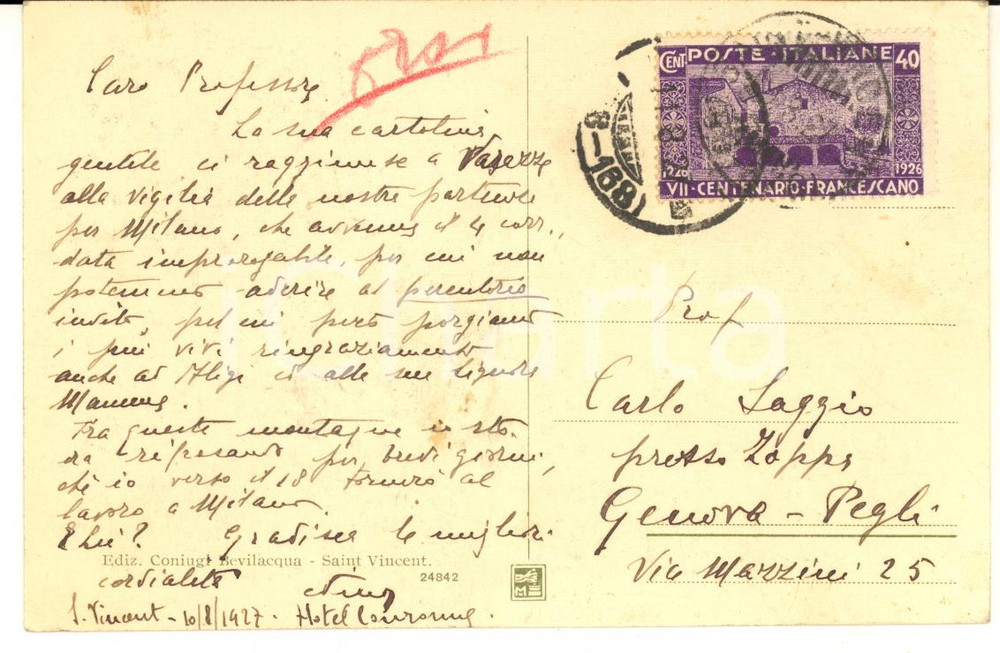 Caro Professore
La sua cartolina
gentile ci raggiunse a Varazze
alla vigilia della nostra partenza
per Milano, che avvenne il 4 corr.,
data improrogabile, per cui non
potemmo aderire al perentorio
invito, pel cui però porgiamo
i più vivi ringraziamenti
anche ad Aligi ed alla sua Signora
Mamma.
Fra queste montagne io sto
riposando per brevi giorni,
chè io verso il 18 tornerò al
lavoro a Milano.
E Lei? Gradisca le migliori
cordialità
S. Vincent - 10/8/1927. Hotel Couronne
Ediz. Coniugi Bevilacqua - Saint Vincent.
24842
CENT POSTE · ITALIANE 40
1226 1926
VII · CENTENARIO · FRANCESCANO
Prof
Carlo Saggio
presso Zoppi
Genova - Pegli
Via Mazzini 25
iCharta